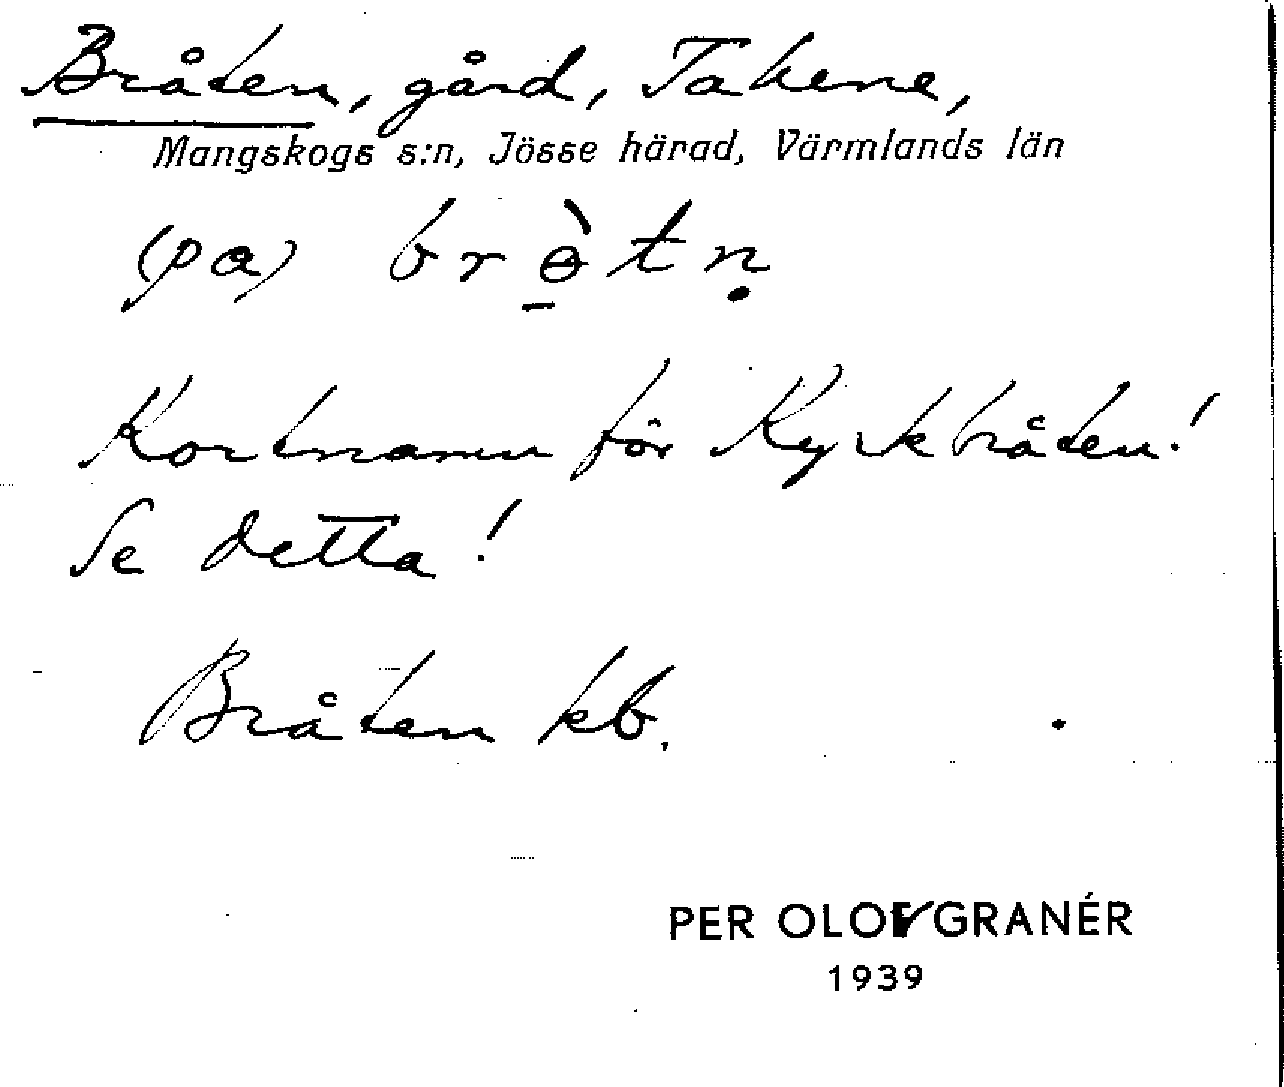 Bråten, gård, Takene,
Mangskogs s:n, Jösse härad, Värmlands län
(pa) brɵ̠̀tṇ
Kortnamn för Kyrkbråten!
Se detta!
Bråten kb.
PER OLOF GRANÉR
1939